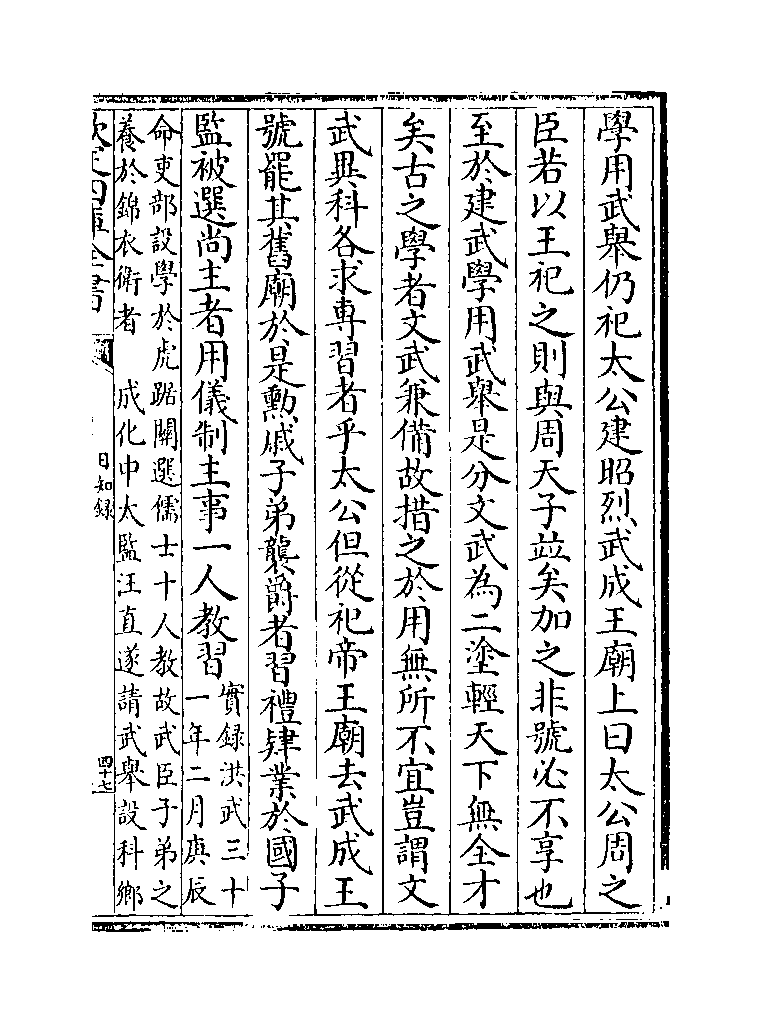 學用武舉仍祀太公建昭烈武成王廟上曰太公周之
臣若以王祀之則與周天子竝矣加之非號必不享也
至於建武學用武舉是分文武為二塗輕天下無全才
矣古之學者文武兼備故措之於用無所不宜豈謂文
武異科各求專習者乎太公但從祀帝王廟去武成王
號罷其舊廟於是勲戚子弟襲爵者習禮肄業於國子
監被選尚主者用儀制主事一人教習
實録洪武三十
一年二月庚辰
命吏部設學於虎踞關選儒士十人教故武臣子弟之
養於錦衣衛者　成化中太監汪直遂請武舉設科鄉
欽定四庫全書
日知録
四十七